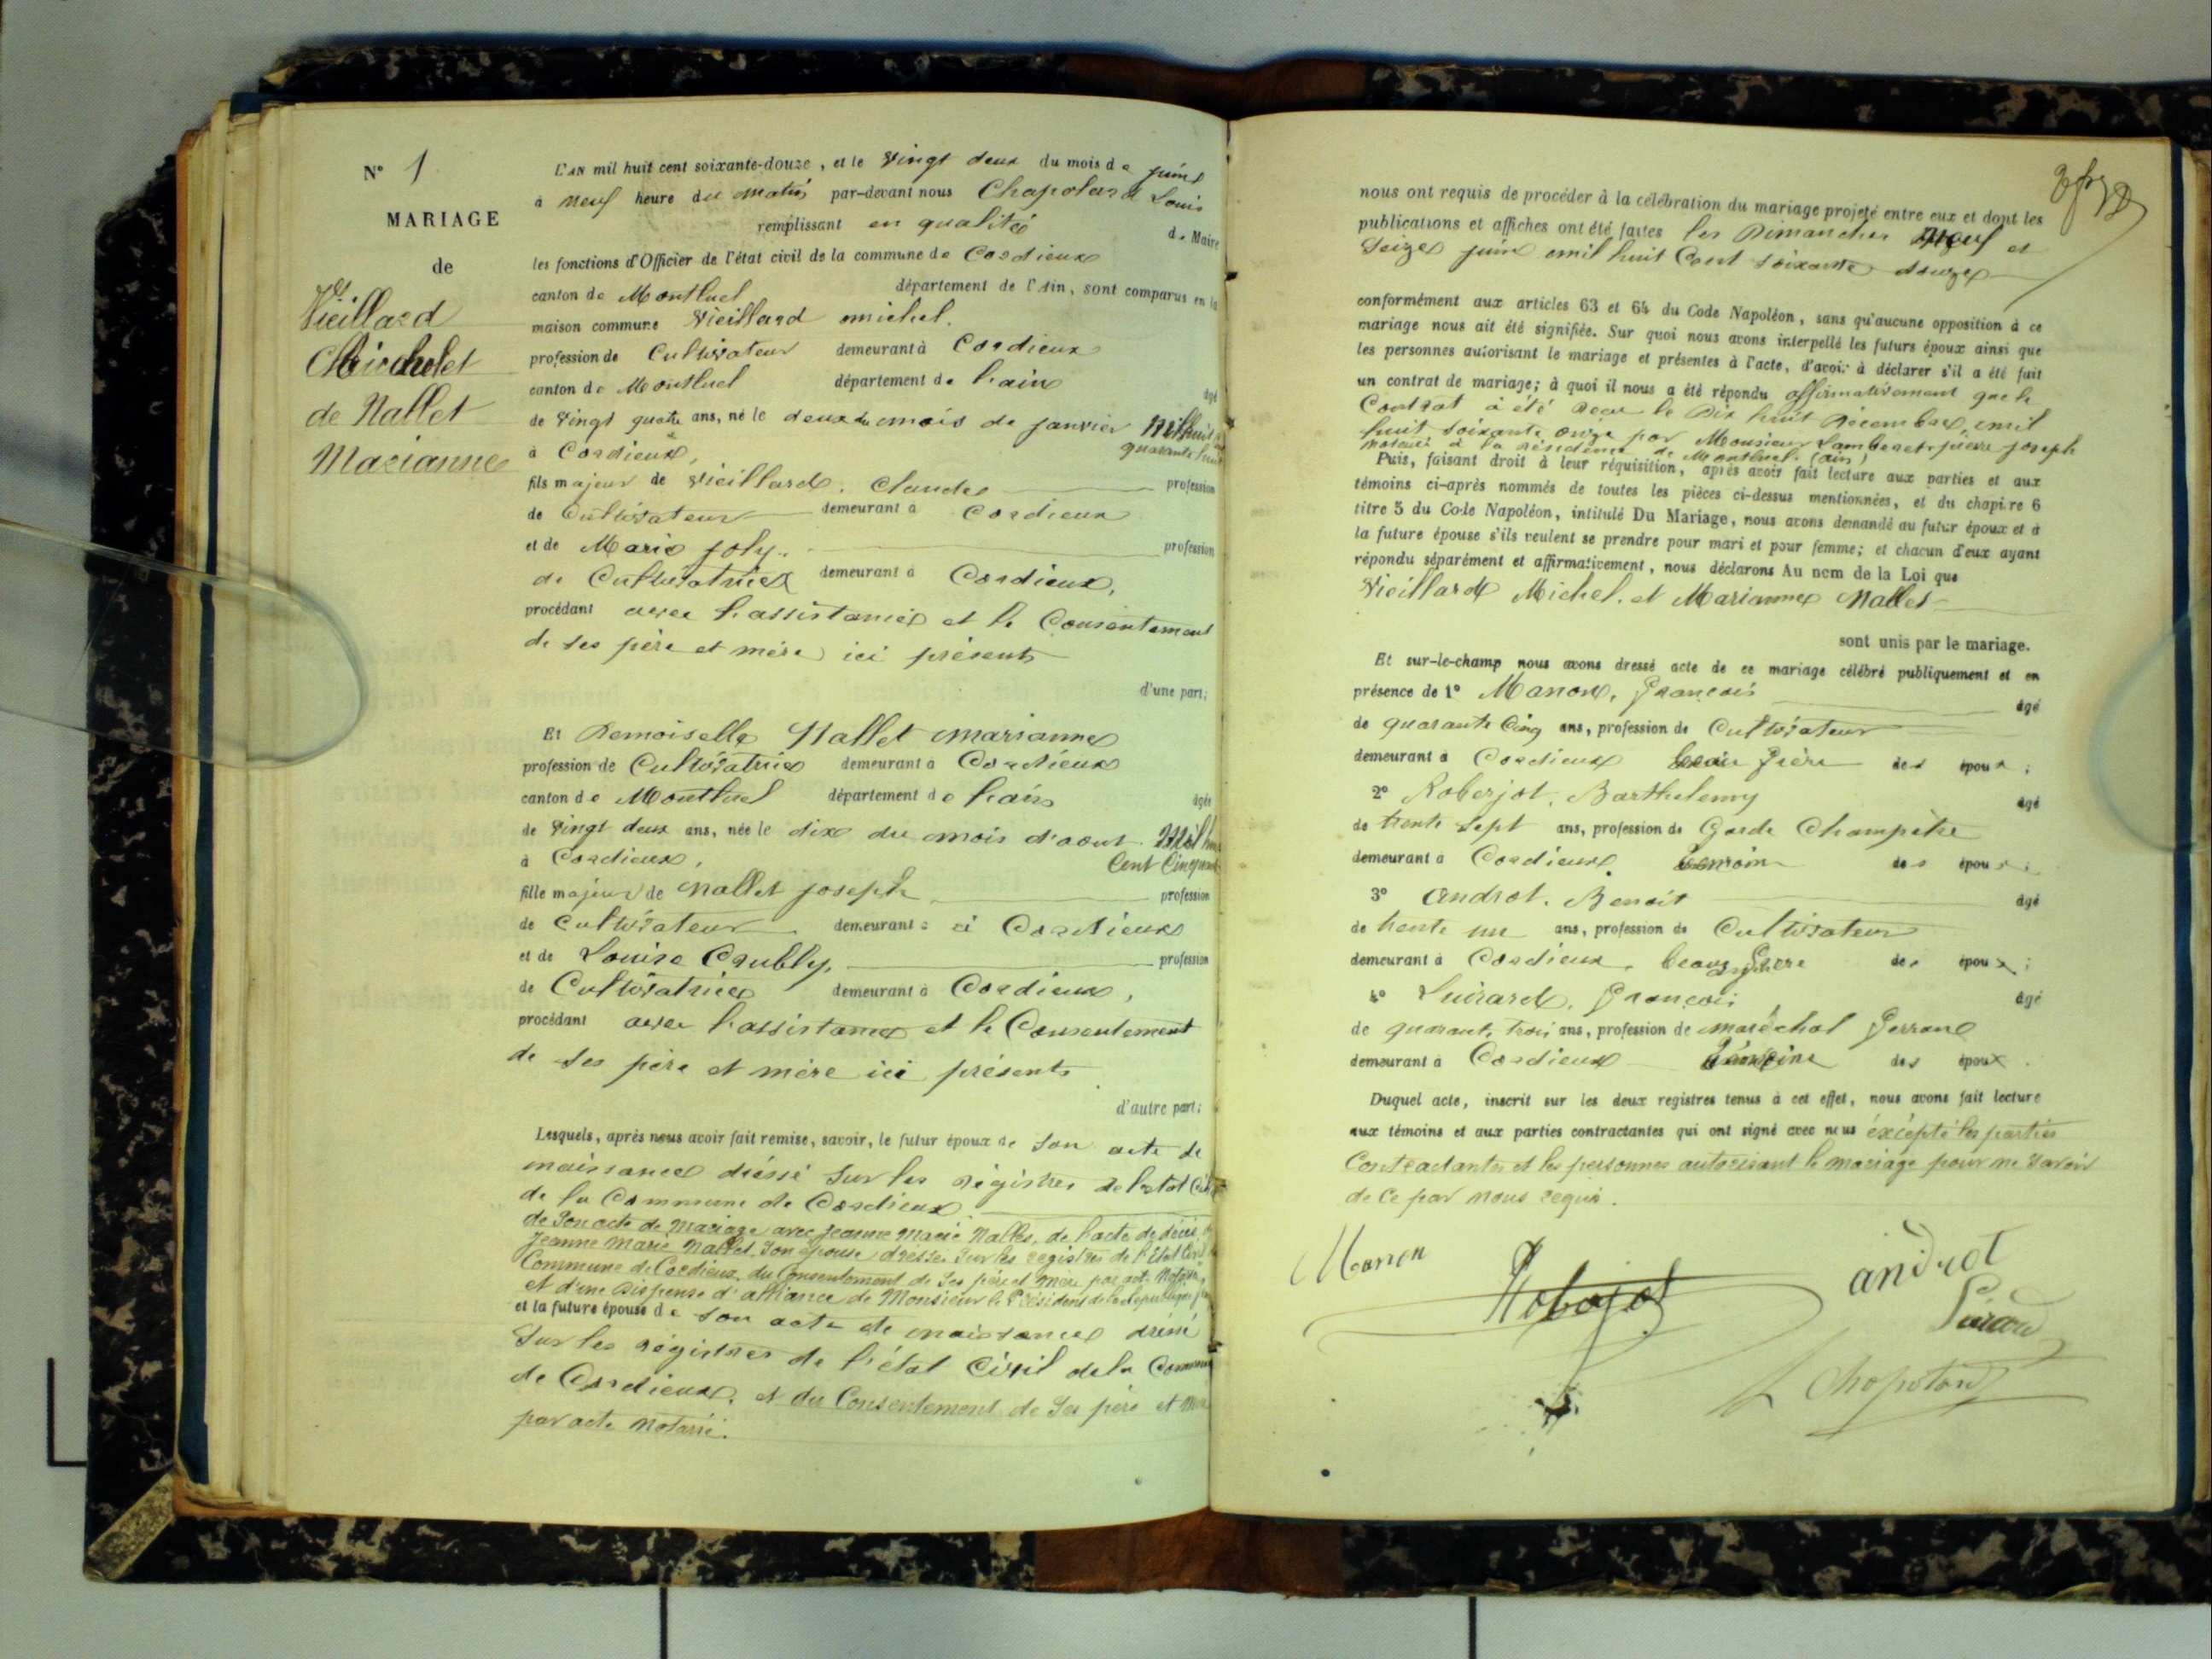 N° 1
MARIAGE
de
Vieillard
Michel et
de Nallet
Marianne
L'AN mil huit cent soixante-douze, et le Vingt deux du mois de juin
à neuf heure du matin par-devant nous Chapolard Louis
remplissant en qualité de Maire
les fonctions d'Officier de l'état civil de la commune de Cordieux
canton de Montluel département de l'Ain, sont comparus en la
maison commune Vieillard michel.
profession de Cultivateur demeurant à Cordieux
canton de Montluel département de l'ain âgé
de Vingt quatre ans, né le deux du mois de janvier Mil huit
à Cordieux, quarante huit
fils majeur de Vieillard, Claude profession
de Cultivateur demeurant à Cordieux
et de Marie Joly. profession
de Cultivatrice demeurant à Cordieux,
procédant avec l'assistance et le Consentement
de ses père et mère ici présents
d'une part;
Et Demoiselle Nallet marianne
profession de Cultivatrice demeurant à Cordieux
canton de Montluel département de l'ain âgée
de Vingt deux ans, née le dix du mois d'aout Mil
à Cordieux, Cent Cinquante
fille majeur de Nallet joseph profession
de Cultivateur demeurant à Cordieux
et de Louise profession
de Cultivatrice demeurant à Cordieux,
procédant avec l'assistance et le Consentement
de ses père et mère ici présents
d'autre part;
Lesquels, après nous avoir fait remise, savoir, le futur époux de son acte de
naissance dréssé sur les régistres de l'etat Civil
de la Commune de Cordieux
de son acte de mariage avec jeanne marie Nallet, de l'acte de décès
jeanne marie Nallet son épouse dressé sur les registres de l'Etat Civil
Commune de Cordieux, du Consentement de ses père et mère par acte Notarié,
et d'une Dispense d'alliance de Monsieur le Président de la République
et la future épouse de son acte de naissance dréssé
Sur les régistres de l'état Civil de la Commune
de Cordieux, et du Consentement de Ses père et mère
par acte Notarié.
nous ont requis de procéder à la célébration du mariage projeté entre eux et dont les
publications et affiches ont été faites les Dimanches Neuf et
Seize juin mil huit Cent soixante douze
conformément aux articles 63 et 64 du Code Napoléon, sans qu'aucune opposition à ce
mariage nous ait été signifiée. Sur quoi nous avons interpellé les futurs époux ainsi que
les personnes autorisant le mariage et présentes à l'acte, d'avoir à déclarer s'il a été fait
un contrat de mariage; à quoi il nous a été répondu affirmativement que le
Contrat à été recu le Dix huit Décembre, mil
huit soixante onze par Monsieur Lamberet pierre joseph
notaire à la résidence de Montluel. (ain)
Puis, faisant droit à leur réquisition, après avoir fait lecture aux parties et aux
témoins ci-après nommés de toutes les pièces ci-dessus mentionnées, et du chapitre 6
titre 5 du Code Napoléon, intitulé Du Mariage, nous avons demandé au futur époux et à
la future épouse s'ils veulent se prendre pour mari et pour femme; et chacun d'eux ayant
répondu séparément et affirmativement, nous déclarons Au nom de la Loi que
Vieillard Michel. et Marianne Nallet
sont unis par le mariage.
Et sur-le-champ nous avons dressé acte de ce mariage célébré publiquement et en
présence de 1° Manon, François âgé
de quarante Cinq ans, profession de Cultivateur
demeurant à Cordieux beau frère des époux;
2° Roberjot, Barthelemy âgé
de trente sept ans, profession de Garde Champêtre
demeurant à Cordieux. témoin des époux;
3° Androt. Benoit âgé
de trente un ans, profession de Cultivateur
demeurant à Cordieux. beau frère des époux;
4° François âgé
de quarante trois ans, profession de maréchal ferrant
demeurant à Cordieux témoins des époux.
Duquel acte, inscrit sur les deux registres tenus à cet effet, nous avons fait lecture
aux témoins et aux parties contractantes qui ont signé avec nous éxcépté les parties
Contractantes et les personnes autorisant le mariage pour ne savoir
de ce par nous requis.
Manon
Roberjot
androt
L Chapolard